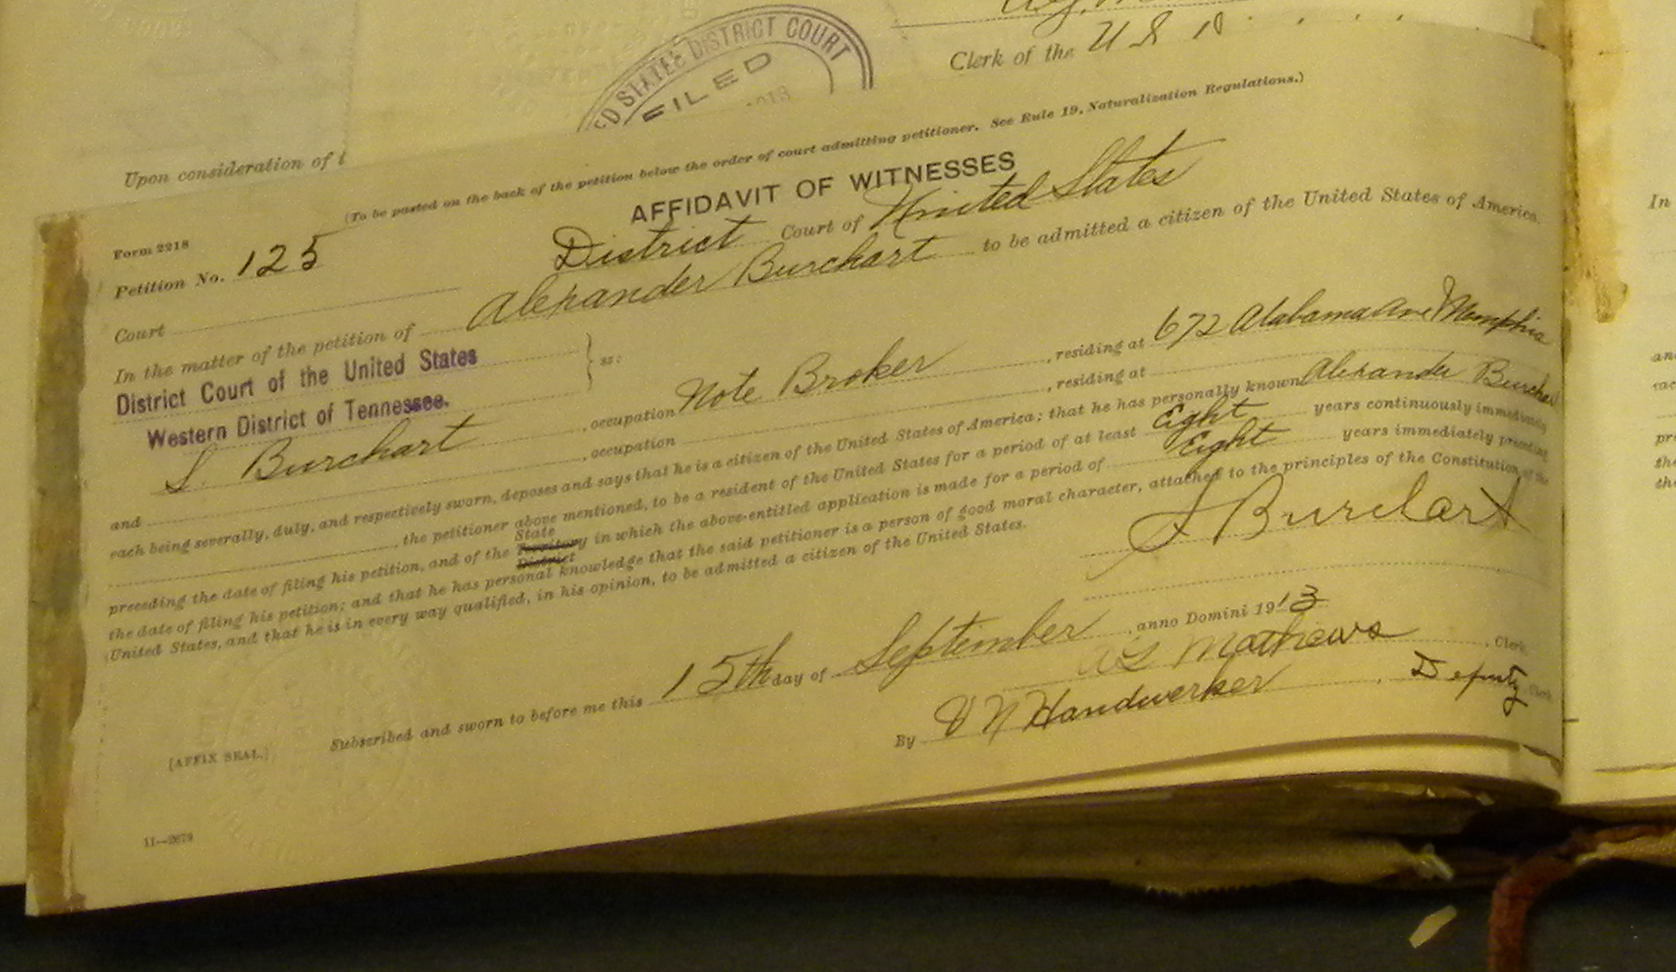 Clerk of the U S D
STATES DISTRICT COURT
FILED
Upon consideration of t
(To be pasted on the back of the petition below the order of court admitting petitioner. See Rule 19, Naturalization Regulations.)
AFFIDAVIT OF WITNESSES
Form 2218
Petition No. 125
District Court of United States
Court
In the matter of the petition of Alexander Burchart to be admitted a citizen of the United States of America.
District Court of the United States
Western District of Tennessee.
ss:
S. Burchart, occupation Note Broker, residing at 672 Alabama Ave Memphis
and, occupation, residing at
each being severally, duly, and respectively sworn, deposes and says that he is a citizen of the United States of America; that he has personally known Alexander Burchar
, the petitioner above mentioned, to be a resident of the United States for a period of at least Eight years continuously immediately
preceding the date of filing his petition, and of the State Territory District in which the above-entitled application is made for a period of Eight years immediately preceding
the date of filing his petition; and that he has personal knowledge that the said petitioner is a person of good moral character, attached to the principles of the Constitution of the
United States, and that he is in every way qualified, in his opinion, to be admitted a citizen of the United States.
S Burchart
Subscribed and sworn to before me this 15th day of September, anno Domini 1913
Mathews, Clerk.
By V N Handwerker, Deputy Clerk.
[AFFIX SEAL.]
11—2679
In